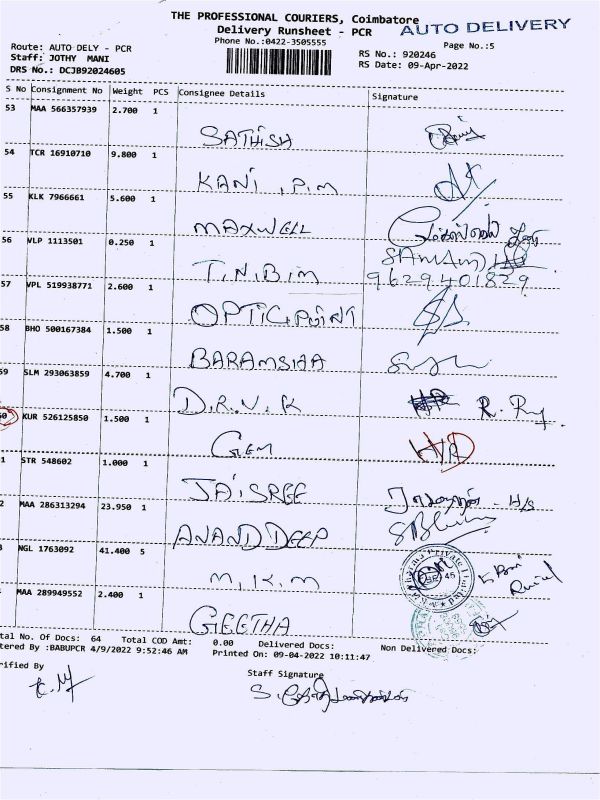 THE PROFESSIONAL COURIERS, Coimbatore
AUTO DELIVERY
Delivery Runsheet - PCR
Route: AUTO DELY - PCR
Phone No.:0422-3505555
Page No.:5
Staff: JOTHY MANI
RS No.: 920246
DRS No.: DCJB92024605
RS Date: 09-Apr-2022
S No Consignment No Weight PCS Consignee Details Signature
53 MAA 566357939 2.700 1
SATHISH
54 TCR 16910710 9.800 1
KANI .P.M
55 KLK 7966661 5.600 1
MAXWELL
56 VLP 1113501 0.250 1
T.N.B.I.M
9629401829
57 VPL 519938771 2.600 1
OPTIC.POINT
58 BHO 500167384 1.500 1
BARAMSHAA
59 SLM 293063859 4.700 1
D.R.V.K
60 KUR 526125850 1.500 1
GEM
1 STR 548602 1.000 1
JAI SREE
2 MAA 286313294 23.950 1
ANAND DEEP
3 NGL 1763092 41.400 5
M.K.M
MAA 289949552 2.400 1
GEETHA
tal No. Of Docs: 64 Total COD Amt: 0.00 Delivered Docs: Non Delivered Docs:
tered By :BABUPCR 4/9/2022 9:52:46 AM Printed On: 09-04-2022 10:11:47
rified By
Staff Signature